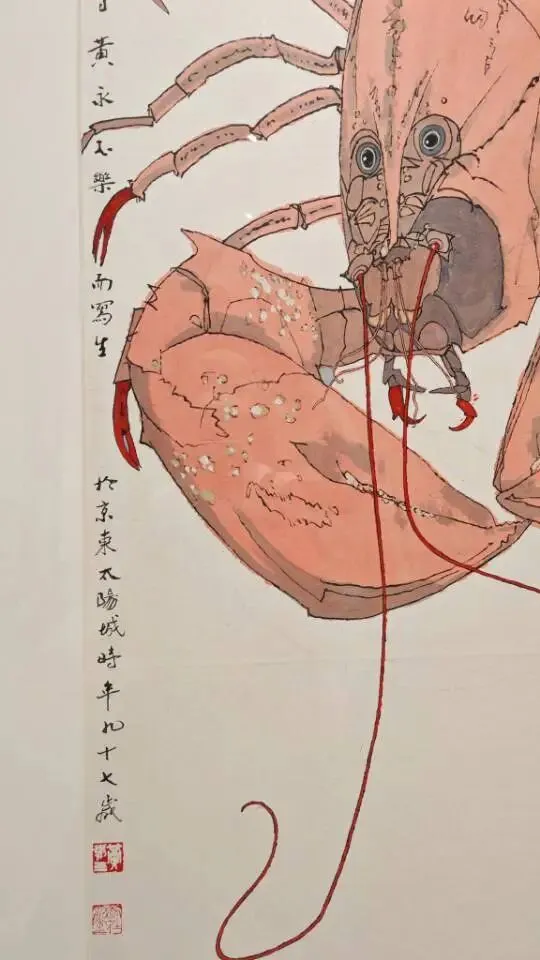 黃永玉樂而寫生於京東太陽城時年九十七歲